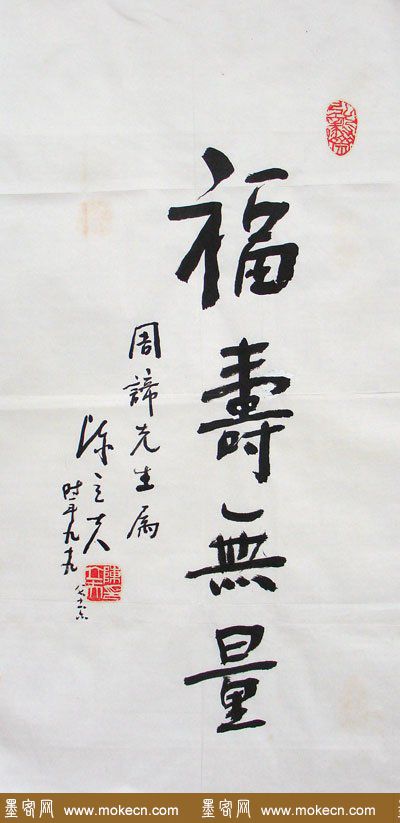 福壽無量
周諦先生屬
陳立夫
時年九十九
墨客网 www.mokecn.com 墨客网 www.mokecn.com